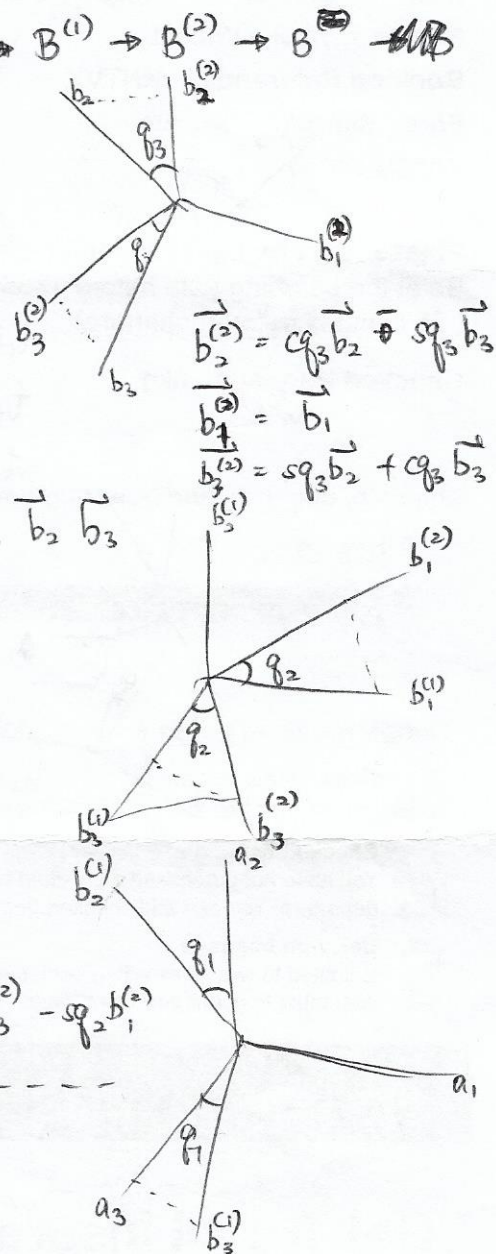 B^(1) → B^(2) → B
b_2 b_2^(2)
q_3
q_3
b_1^(2)
b_3^(2)
b_3
b_2^(2) = cq_3 b_2 - sq_3 b_3
b_1^(2) = b_1
b_3^(2) = sq_3 b_2 + cq_3 b_3
b_2 b_3
b_2^(1)
b_1^(2)
q_2
b_1^(1)
q_2
b_3^(1)
b_3^(2)
a_2
b_2^(1)
q_1
- sq_2 b_1^(2)
a_1
q_1
a_3
b_3^(1)